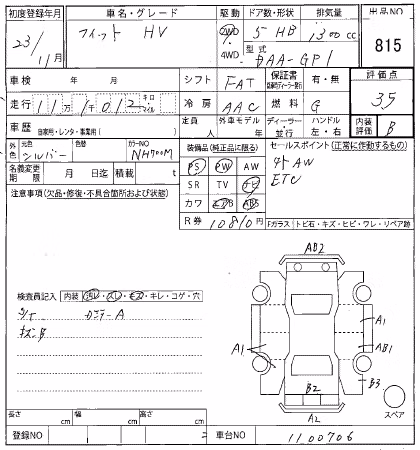 初度登録年月 車名・グレード 駆動 ドア数・形状 排気量 出品NO
23/11月 フィット HV 2WD 4WD 5 HB 1300cc 815
型式 DAA-GP1
車検 年 月 シフト FAT 保証書 有・無 評価点
走行 11万1千012 キロ マイル 冷房 AAC 燃料 G 3.5
車歴 自家用・レンタ・事業用( ) 定員 人 外車モデル 年 ディーラー 並行 ハンドル 左・右 内装評価 B
外色 元色 シルバー 色替 カラーNO NH700M 装備品(純正品に限る) セールスポイント(正常に作動するもの)
名義変更期限 月 日迄 積載 t PS PW AW 外AW
注意事項(欠品・修復・不具合箇所および状態) SR TV ナビ ETC
カワ エアB ABS
R券 10810円 Fガラス トビ石・キズ・ヒビ・ワレ・リペア跡
AB2
検査員記入 内装 汚レ・スレ・キズ・キレ・コゲ・穴
A
キズB
A1
A1 AB1
B3
B2
A2 スペア
長さ cm 幅 cm 高さ cm
登録NO 車台NO 1100706